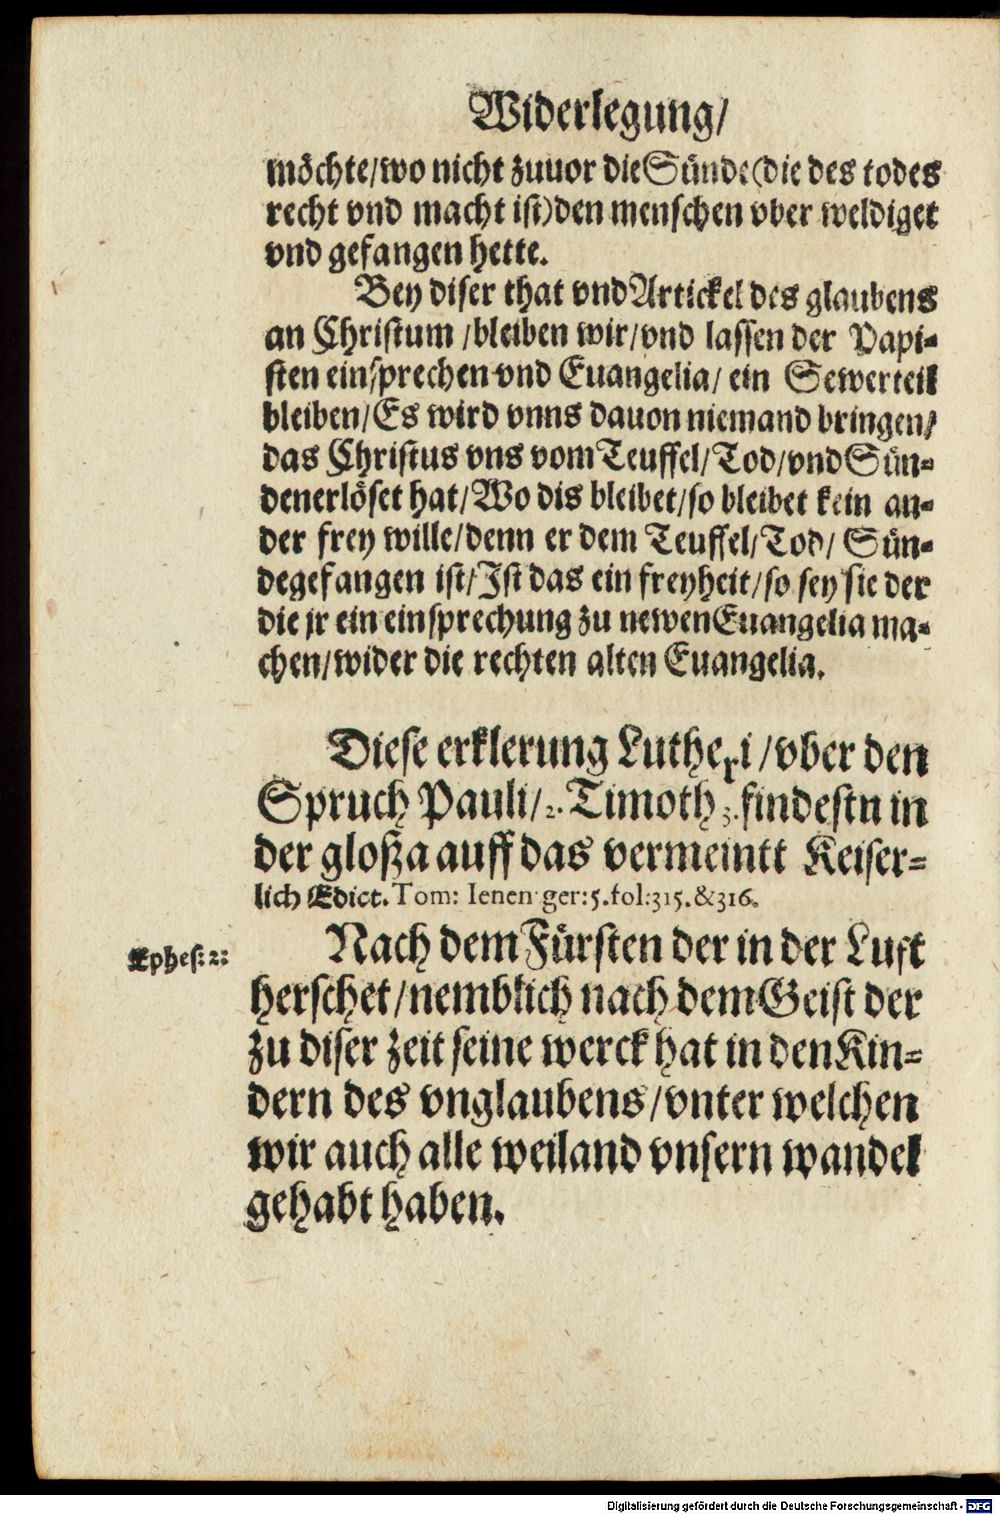 Widerlegung/
möchte/wo nicht zuuor die Sünde (die des todes
recht vnd macht ist) den menschen vber weldiget
vnd gefangen hette.
Bey diser that vnd Artickel des glaubens
an Christum /bleiben wir/vnd lassen der Papi-
sten einsprechen vnd Euangelia/ ein Sewerteil
bleiben/Es wird vnns dauon niemand bringen/
das Christus vns vom Teuffel/Tod/vnd Sün-
den erlöset hat/Wo dis bleibet/so bleibet kein an-
der frey wille/denn er dem Teuffel/Tod/ Sün-
de gefangen ist/Ist das ein freyheit/so sey sie der
die jr ein einsprechung zu newen Euangelia ma-
chen/wider die rechten alten Euangelia.
Diese erklerung Lutheri /vber den
Spruch Pauli/2. Timoth 3. findestu in
der gloßa auff das vermeintt Keiser-
lich Edict. Tom: Ienen ger:5.fol:315.&316.
Nach dem Fürsten der in der Luft
Ephes: 2:
herschet/nemblich nach dem Geist der
zu diser zeit seine werck hat in den Kin-
dern des vnglaubens/vnter welchen
wir auch alle weiland vnsern wandel
gehabt haben.
Digitalisierung gefördert durch die Deutsche Forschungsgemeinschaft - DFG